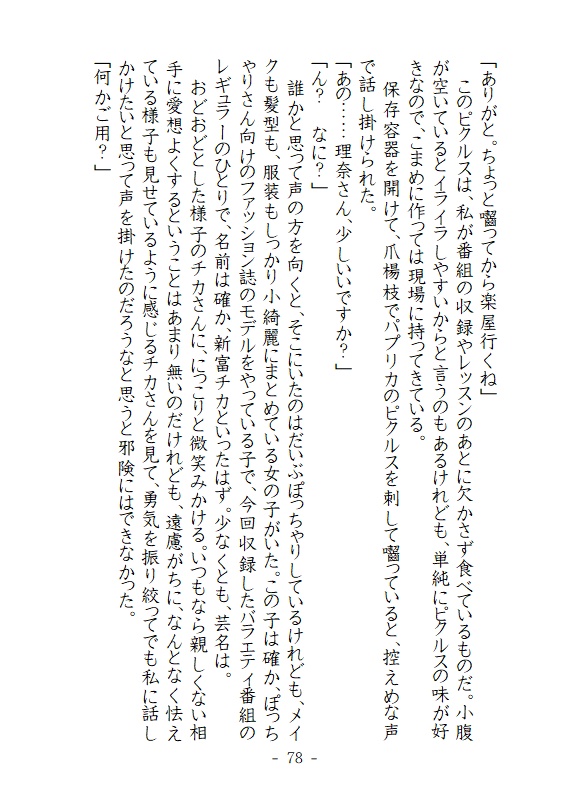 「ありがと。ちょっと囓ってから楽屋行くね」
　このピクルスは、私が番組の収録やレッスンのあとに欠かさず食べているものだ。小腹
が空いているとイライラしやすいからと言うのもあるけれども、単純にピクルスの味が好
きなので、こまめに作っては現場に持ってきている。
　保存容器を開けて、爪楊枝でパプリカのピクルスを刺して囓っていると、控えめな声
で話し掛けられた。
「あの……理奈さん、少しいいですか？」
「ん？　なに？」
　誰かと思って声の方を向くと、そこにいたのはだいぶぽっちゃりしているけれども、メイ
クも髪型も、服装もしっかり小綺麗にまとめている女の子がいた。この子は確か、ぽっち
ゃりさん向けのファッション誌のモデルをやっている子で、今回収録したバラエティ番組の
レギュラーのひとりで、名前は確か、新富チカといったはず。少なくとも、芸名は。
　おどおどとした様子のチカさんに、にっこりと微笑みかける。いつもなら親しくない相
手に愛想よくするということはあまり無いのだけれども、遠慮がちに、なんとなく怯え
ている様子も見せているように感じるチカさんを見て、勇気を振り絞ってでも私に話し
かけたいと思って声を掛けたのだろうなと思うと邪険にはできなかった。
「何かご用？」
- 78 -